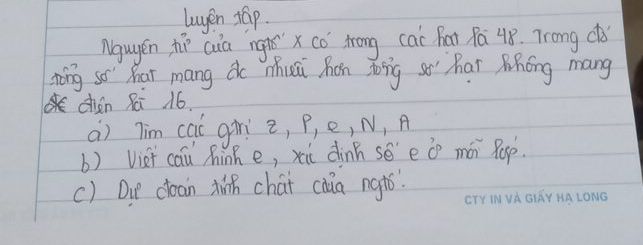 Luyện tập.
Nguyên tử của ngtố X có trong các hạt là 48. Trong đó
tổng số hạt mang đc nhiều hơn tổng số hạt không mang
điện là 16.
a) Tìm các gtrị Z, P, e, N, A
b) Viết cấu hình e, xác định số e ở mỗi lớp.
c) Dự đoán tính chất của ngtố.
CTY IN VÀ GIẤY HẠ LONG